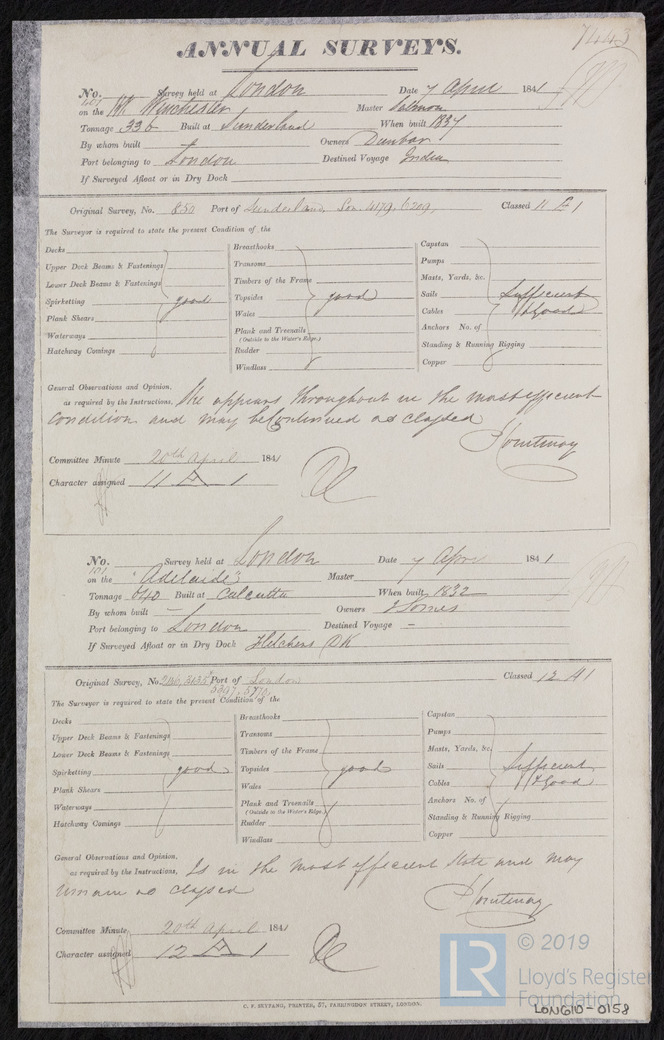 7443
ANNUAL SURVEYS.
No. 101 Survey held at London Date 7 April 1841
on the Winchester Master Salmon
Tonnage 330 Built at Sunderland When built 1837
By whom built Owners Dunbar
Port belonging to London Destined Voyage India
If Surveyed Afloat or in Dry Dock
Original Survey, No. 850 Port of Sunderland, Lon. 4179, 6209, Classed 11 A 1
The Surveyor is required to state the present Condition of the
Decks Breasthooks Capstan
Upper Deck Beams & Fastenings Transoms Pumps
Lower Deck Beams & Fastenings Timbers of the Frame Masts, Yards, &c.
Spirketting good Topsides good Sails Sufficient
Plank Shears Wales Cables & Good
Waterways Plank and Treenails Anchors No. of
(Outside to the Water's Edge.)
Hatchway Comings Rudder Standing & Running Rigging
Windlass Copper
General Observations and Opinion,
as required by the Instructions, She appears throughout in the most efficient
Condition and may be Continued as classed
Courtenay
Committee Minute 20th April 1841
Character assigned 11 A 1
No. 101 Survey held at London Date 7 April 1841
on the "Adelaide" Master
Tonnage 640 Built at Calcutta When built 1832
By whom built — Owners
Port belonging to London Destined Voyage —
If Surveyed Afloat or in Dry Dock Fletchers DK
Original Survey, No. Port of London Classed 12 A 1
The Surveyor is required to state the present Condition of the
Decks Breasthooks Capstan
Upper Deck Beams & Fastenings Transoms Pumps
Lower Deck Beams & Fastenings Timbers of the Frame Masts, Yards, &c.
Spirketting good Topsides good Sails Sufficient
Plank Shears Wales Cables & Good
Waterways Plank and Treenails Anchors No. of
(Outside to the Water's Edge.)
Hatchway Comings Rudder Standing & Running Rigging
Windlass Copper
General Observations and Opinion,
as required by the Instructions, Is in the most efficient state and may
remain as classed
Courtenay
Committee Minute 20th April 1841
Character assigned 12 A 1
C. F. SEYFANG, PRINTER, 57, FARRINGDON STREET, LONDON.
LR © 2019
Lloyd's Register
Foundation
LON610-0158